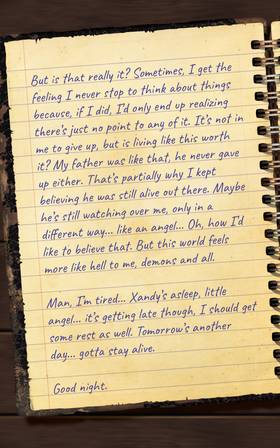 But is that really it? Sometimes, I get the
feeling I never stop to think about things
because, if I did, I'd only end up realizing
there's just no point to any of it. It's not in
me to give up, but is living like this worth
it? My father was like that, he never gave
up either. That's partially why I kept
believing he was still alive out there. Maybe
he's still watching over me, only in a
different way... like an angel... Oh, how I'd
like to believe that. But this world feels
more like hell to me, demons and all.
Man, I'm tired... Xandy's asleep, little
angel... it's getting late though, I should get
some rest as well. Tomorrow's another
day... gotta stay alive.
Good night.